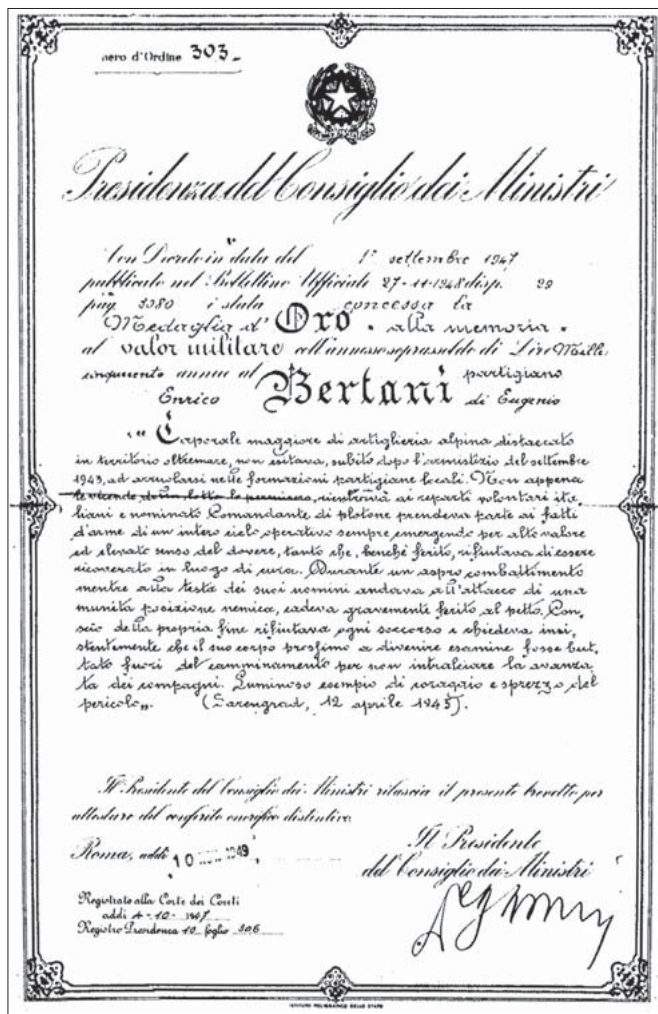 nero d'Ordine 303-
Presidenza del Consiglio dei Ministri
Con Decreto in data del 1º settembre 1947
pubblicato nel Bollettino Ufficiale 27-11-1948 disp. 29
pag. 3380 è stata concessa la
Medaglia d'Oro "alla memoria"
al valor militare coll'annesso soprassoldo di Lire Mille
cinquecento annue al partigiano
Enrico Bertani di Eugenio
"Caporale maggiore di artiglieria alpina distaccato
in territorio oltremare, non esitava, subito dopo l'armistizio del settembre
1943, ad arruolarsi nelle formazioni partigiane locali. Non appena
le vicende della lotta lo permisero, rientrava ai reparti volontari ita,
liani e nominato Comandante di plotone prendeva parte ai fatti
d'arme di un intero ciclo operativo sempre emergendo per alto valore
ed elevato senso del dovere, tanto che, benchè ferito, rifiutava di essere
ricoverato in luogo di cura. Durante un aspro combattimento
mentre alla testa dei suoi uomini andava all'attacco di una
munita posizione nemica, cadeva gravemente ferito al petto. Con,
scio della propria fine rifiutava ogni soccorso e chiedeva insi,
stentemente che il suo corpo prossimo a divenire esamine fosse but,
tato fuori del camminamento per non intralciare la avanza,
ta dei compagni. Luminoso esempio di coraggio e sprezzo del
pericolo". (Sarengrad, 12 aprile 1945).
Il Presidente del Consiglio dei Ministri rilascia il presente brevetto per
attestare del conferito onorifico distintivo.
Roma, addì 10 NOV. 1949
Il Presidente
del Consiglio dei Ministri
Registrato alla Corte dei Conti
addì 4-10-1947
Registro Presidenza 10 foglio 306
ISTITUTO POLIGRAFICO DELLO STATO